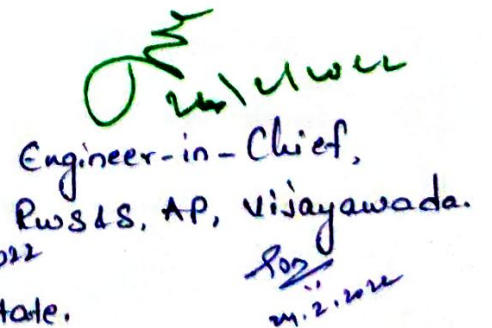 Engineer-in-Chief,
RWS&S, AP, Vijayawada.
022
24.2.2022
tate.